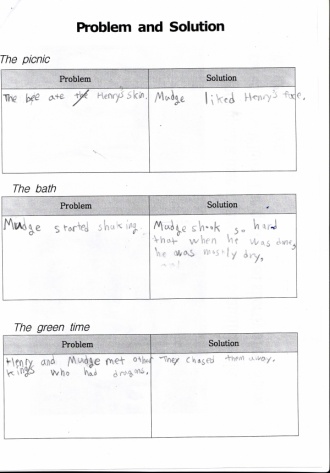 Problem and Solution
The picnic
Problem Solution
The bee ate Henry's skin. Mudge liked Henry's
The bath
Problem Solution
Mudge started shaking. Mudge shook so hard
that when he was done,
he was mostly dry,
The green time
Problem Solution
Henry and Mudge met other They chased them away.
kings who had dragons.